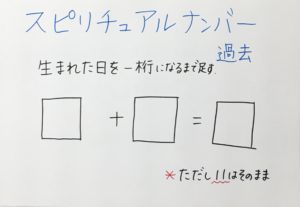 スピリチュアルナンバー
過去
生まれた日を一桁になるまで足す.
+ =
*ただし11はそのまま